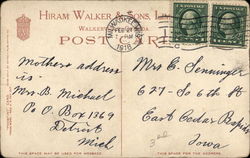 HIRAM WALKER & SONS, LIMITED
WALKERVILLE, CANADA
POST CARD
FEB 21
1918
Mothers address
is -
Mrs. B. Michael
P.O. Box 1369
Detroit
Mich
Mrs E. Senninger
627 - So 6th St
East Cedar Rapids
Iowa
THIS SPACE MAY BE USED FOR MESSAGE.
THIS SPACE FOR THE ADDRESS.